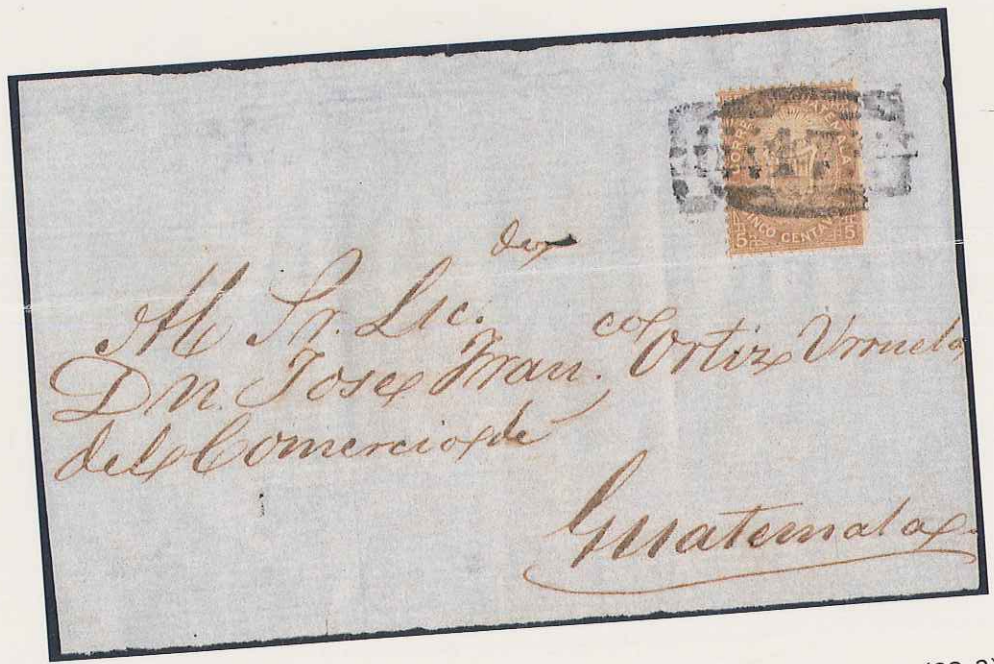 CORREOS DE GUATEMALA
CINCO CENTAVOS
5 5
17
Al Sr. Lic.do
Dn. Jose Fran.co Ortiz Urruela
del Comercio de
Guatemala